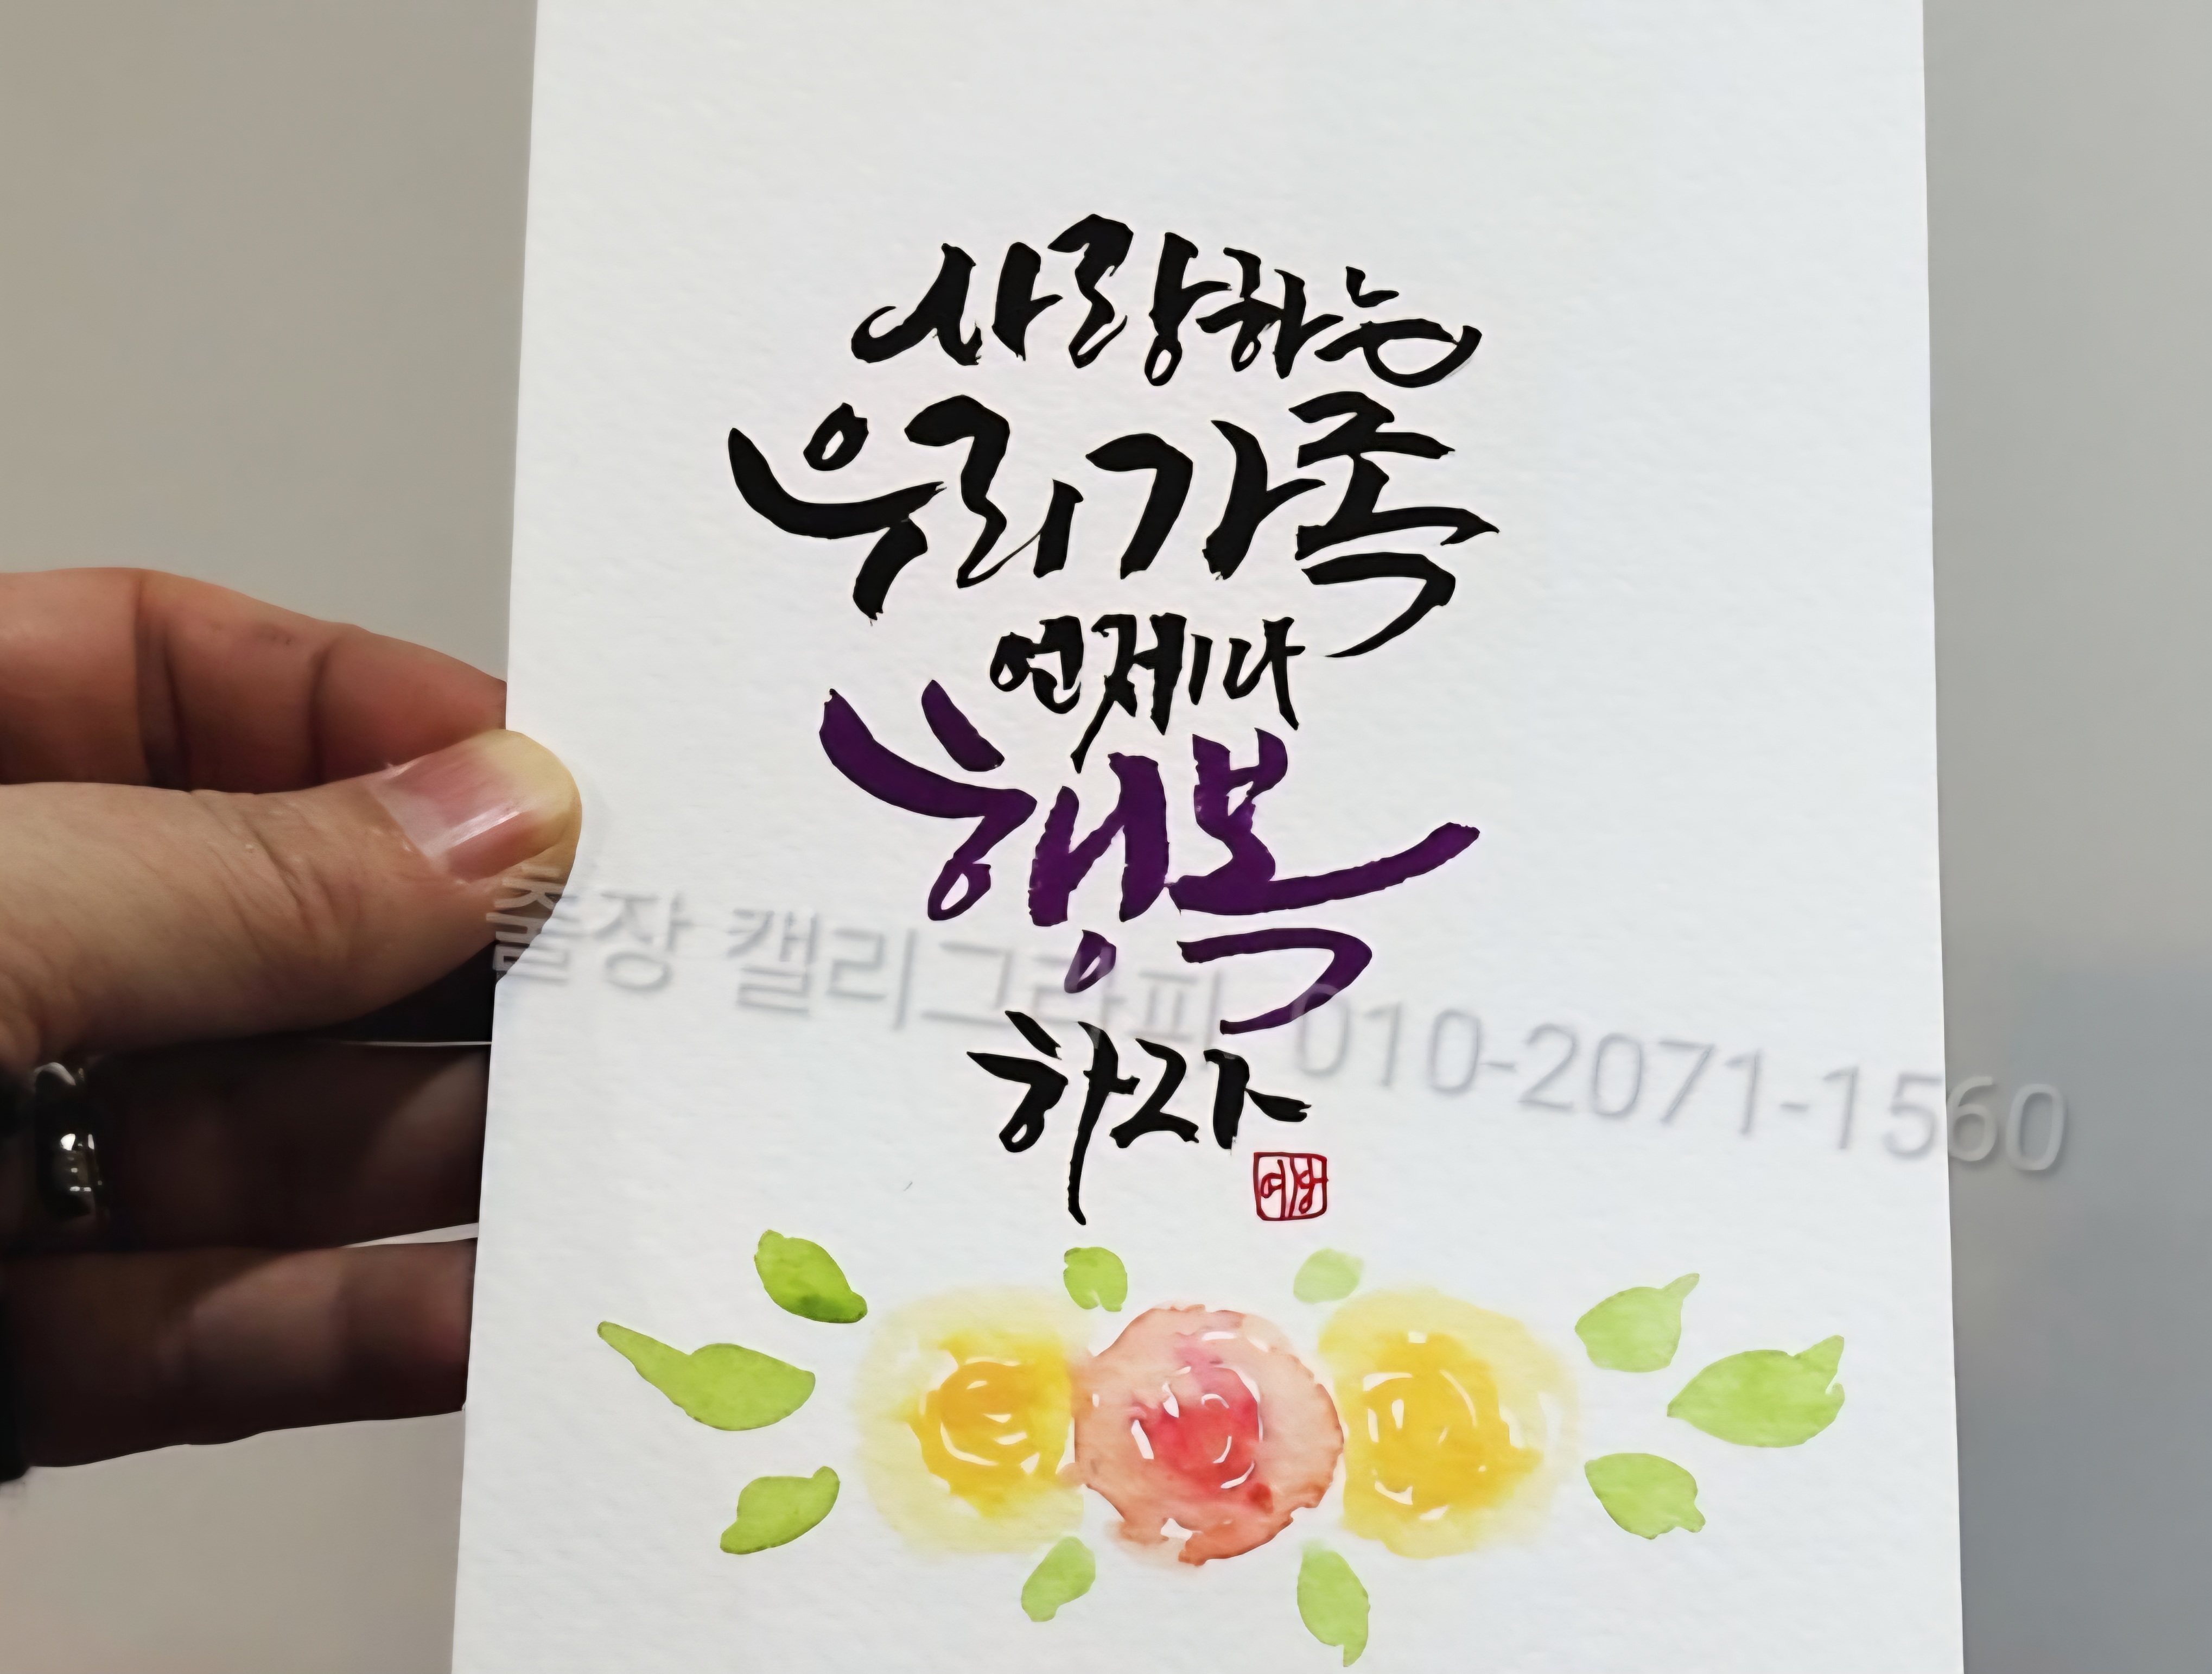 사랑하는
우리가족
언제나
행복
하자
출장 캘리그라피 010-2071-1560